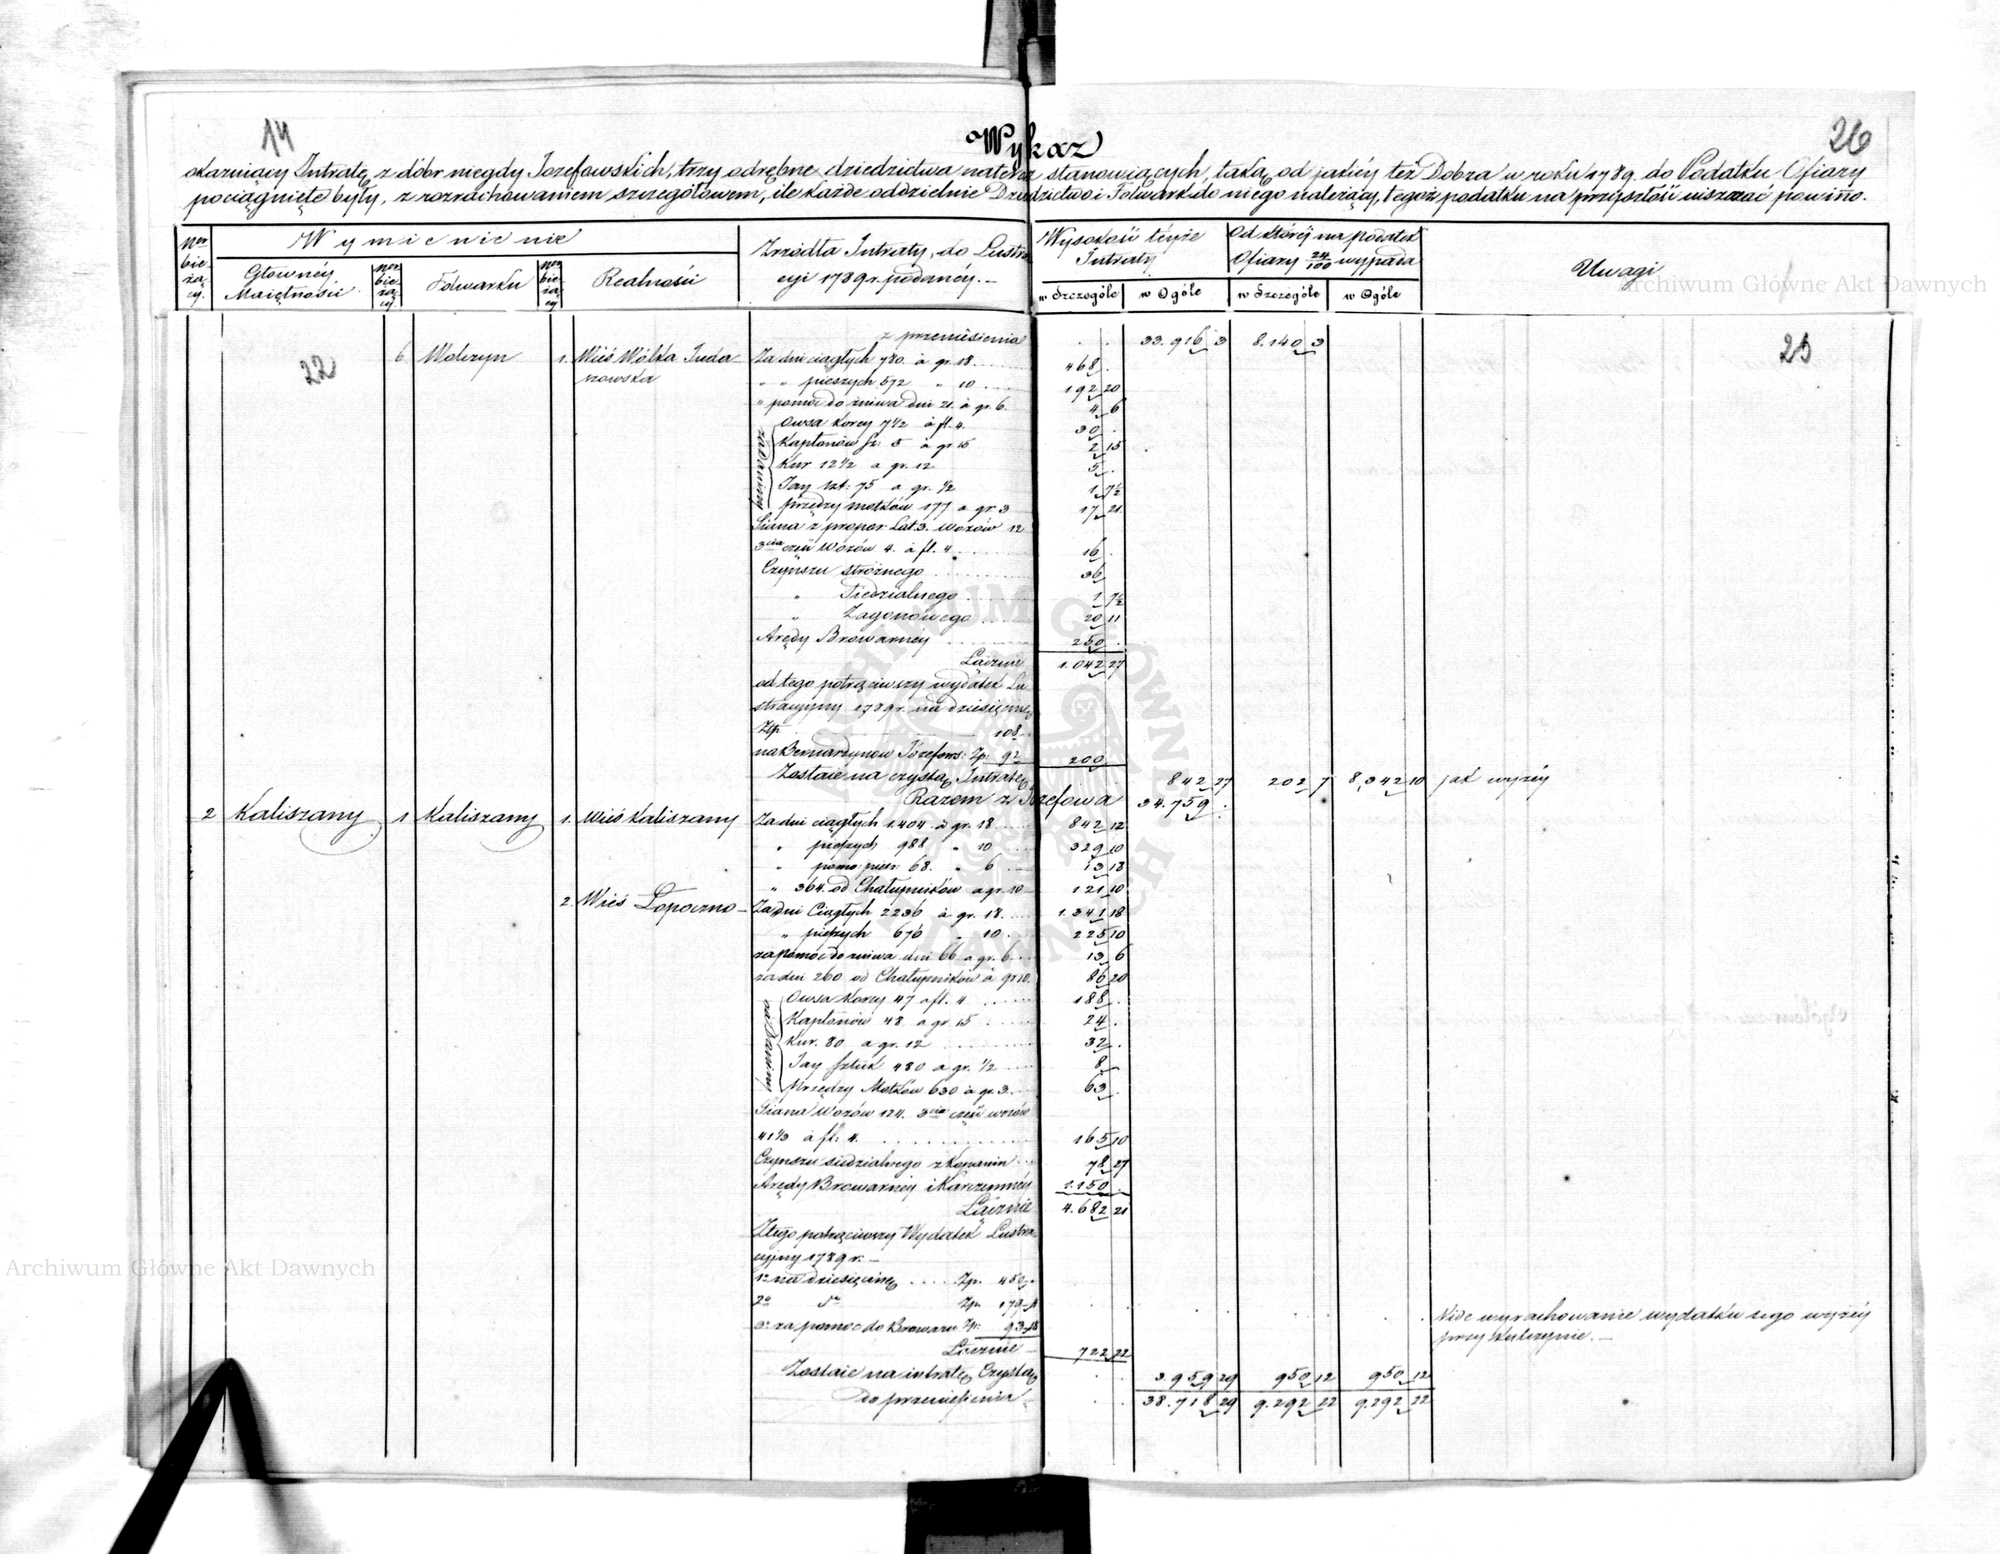 14
26
Wykaz
okazuiący Intratę z dóbr niegdy Jozefowskich, trzy odrębne dziedzictwa nateraz stanowiących, taką od jakiéy też Dobra w roku 1789. do Podatku Ofiary
pociągnięte były, z rozrachowaniem szczegółowem, ile każde oddzielnie Dziedzictwo i Folwark do niego należący, tegoż podatku na przyszłość uiszczać powinno.
Ner bieżący.
Wymienienie
Głównéy Maiętności
Ner bieżący
Folwarku
Ner bieżący
Realności
Zrzódła Intraty, do Lustracyi 1789 r. podanéy.
Wysokość téyże Intraty
w Szczególe
w Ogóle
Od któréj na podatek Ofiary 24/100 wypada
w Szczególe
w Ogóle
Uwagi
22
25
z przeniesienia . . 33.916 3 8.140 3
6 Wolczyn 1. Wieś Wólka Za dni ciągłych 780. à gr. 18. 468 .
nowska " " pieszych 572 " 10 192 20
" pomoc do żniwa dni 21. à gr. 6. 4 6
za Daniny
Owsa korcy 7 1/2 à fl. 4. 30 .
Kapłonów sz. 5 à gr 15 2 15
Kur 12 1/2 a gr. 12 5 .
Jay szt: 75 a gr. 1/2 1 7 1/2
przędzy motków 177 a gr 3 17 21
Siana z propor: Lat 3. wozów 12
3cia część wozów 4. à fl. 4. 16 .
Czynszu stróżnego 36
" Siedzialnego 1 7 1/2
" Zagonowego 20 11
Arędy Browarnéy 250 .
Łącznie 1.042 27
od tego potrąciwszy wydatek Lu
stracyjny 1789 r. na dziesięcinę
Złp. 108
na Bernardynow Józefows: Zp: 92 200
Zostaie na czystą Intratę . 842 27 202 7 8,342 10 jak wyżéy
Razem z Józefowa 34.759 .
2 Kaliszany 1 Kaliszany 1. Wieś Kaliszany Za dni ciągłych 1.404. à gr. 18 842 12
" pieszych 988 " 10 329 10
" pomo: piesz: 68. " 6 13 18
" 364. od Chałupników a gr. 10 121 10
2. Wieś Łopoczno Za dni Ciągłych 2236 à gr. 18. 1.341 18
" pieszych 676 " 10 225 10
za pomoc do żniwa dni 66 a gr. 6 13 6
za dni 260 od Chałupników à gr 10. 86 20
za Daniny
Owsa korcy 47 a fl. 4 188 .
Kapłonów 48 a gr. 15 24 .
Kur. 80 a gr. 12 32 .
Jay sztuk 480 a gr. 1/2 8
Przędzy Motków 630 à gr. 3. 63 .
Siana Wozów 124. 3cia część wozów
41 1/3 à fl. 4. 165 10
Czynszu siedzialnego z Kopanin 78 27
Arędy Browarnéy i Karczemnéy 1.150 .
Łącznie 4.682 21
Z tego potrąciwszy Wydatek Lustra
cyjny 1789 r.
1o na dziesięcinę Zp. 450 .
2o do Zp. 179
3o za pomoc do Browaru Zp: 93 18
Łącznie 722 22
Nide wyrachowanie wydatku tego wyżéy
przy
Zostaie na intratę Czystą . 3.959 29 950 12 950 12
do przeniesienia . . 38.718 29 9.292 22 9.292 22
Archiwum Główne Akt Dawnych
Archiwum Główne Akt Dawnych
ARCHIWUM GŁÓWNE AKT DAWNYCH